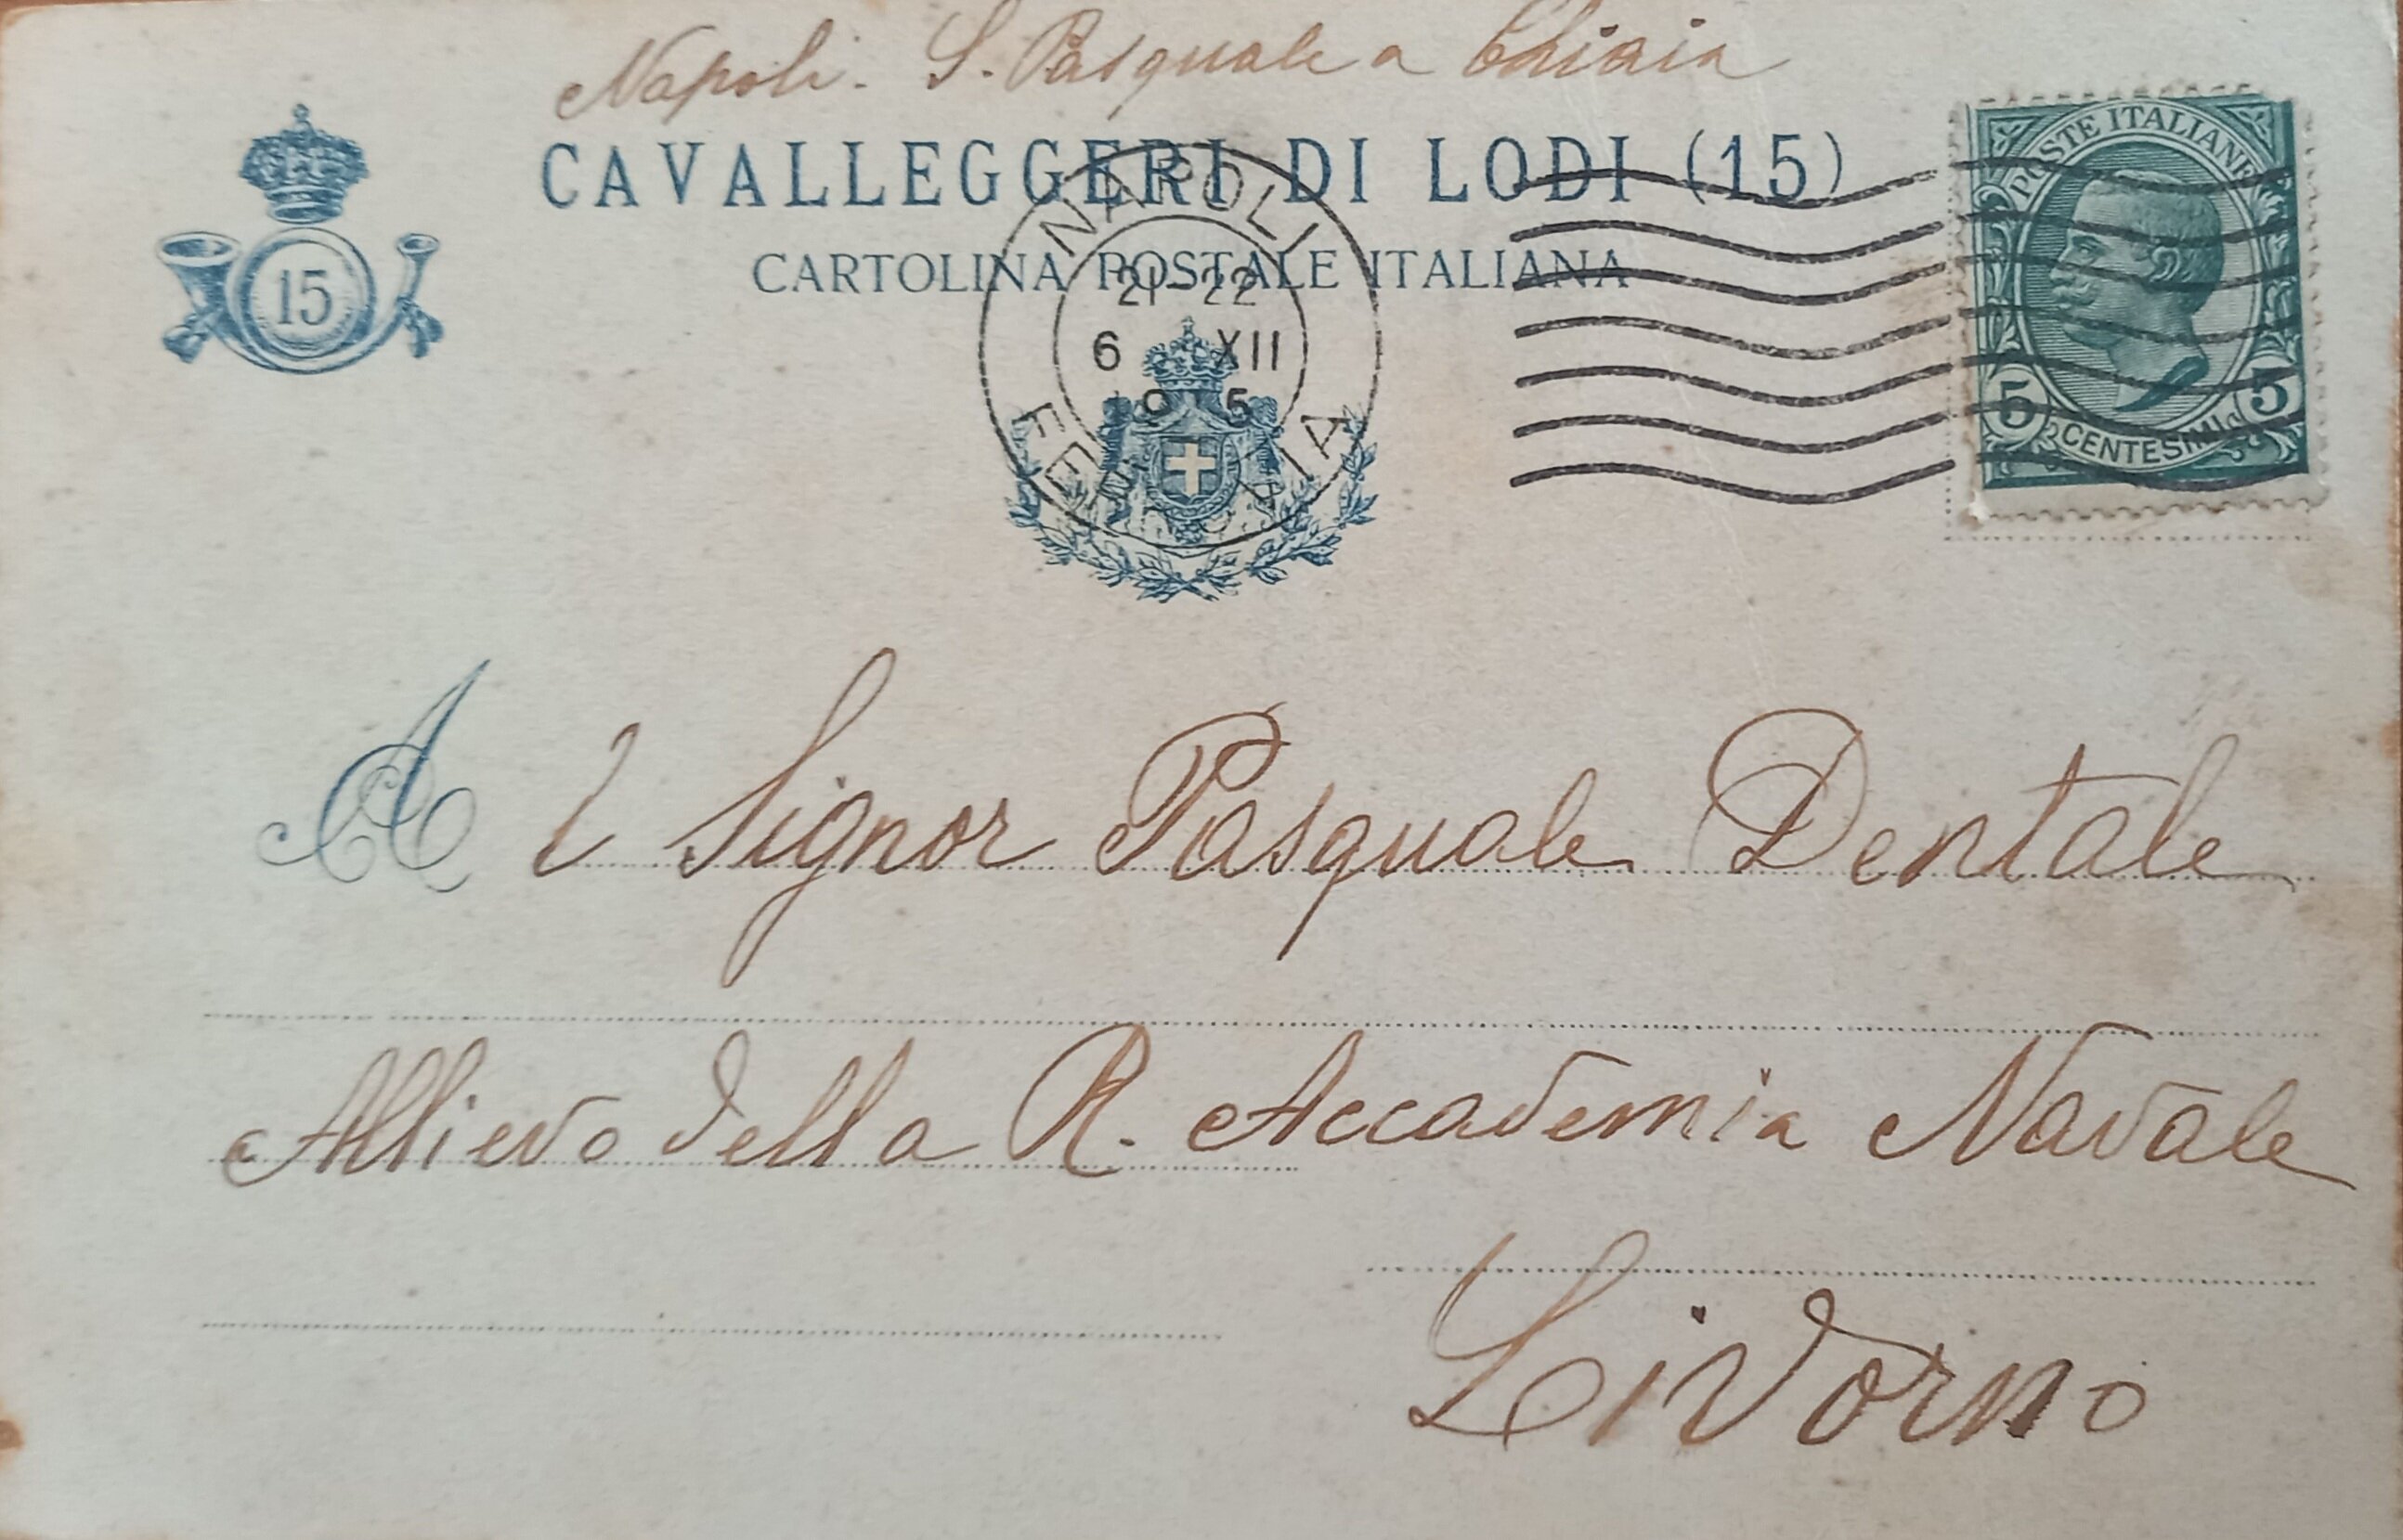 Napoli. S. Pasquale a Chiaia
CAVALLEGGERI DI LODI (15)
CARTOLINA POSTALE ITALIANA
15
NAPOLI
21-22
6 XII
FERROVIA
POSTE ITALIANE
5 CENTESIMI 5
Al Signor Pasquale Dentale
Allievo della R. Accademia Navale
Livorno